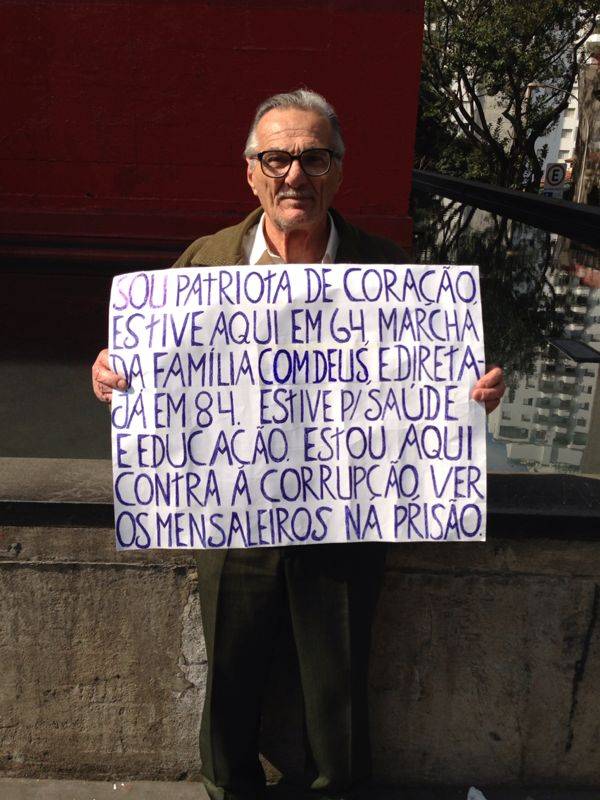 SOU PATRIOTA DE CORAÇÃO,
ESTIVE AQUI EM 64, MARCHA
DA FAMÍLIA COM DEUS, E DIRETA-
JÁ EM 84. ESTIVE P/ SAÚDE
E EDUCAÇÃO. ESTOU AQUI
CONTRA A CORRUPÇÃO, VER
OS MENSALEIROS NA PRISÃO.
E